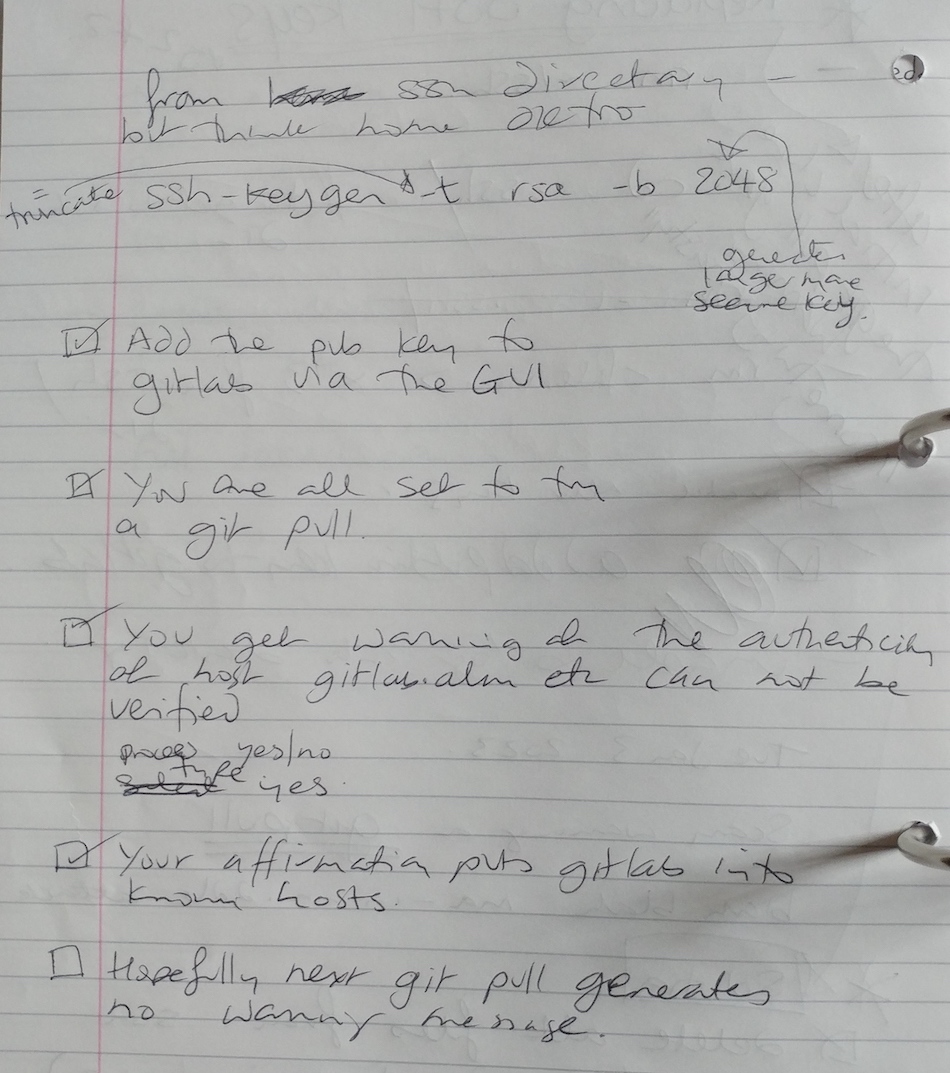 from ssh directory - -
but think home ok too
truncate ssh-keygen -t rsa -b 2048
generates
large more
secure key.
Add the pub key to
gitlab via the GUI
You are all set to try
a git pull.
You get warning of the authenticity
of host gitlab.alm etc can not be
verified
yes/no
type yes.
Your affirmation puts gitlab into
known hosts.
Hopefully next git pull generates
no warning message.